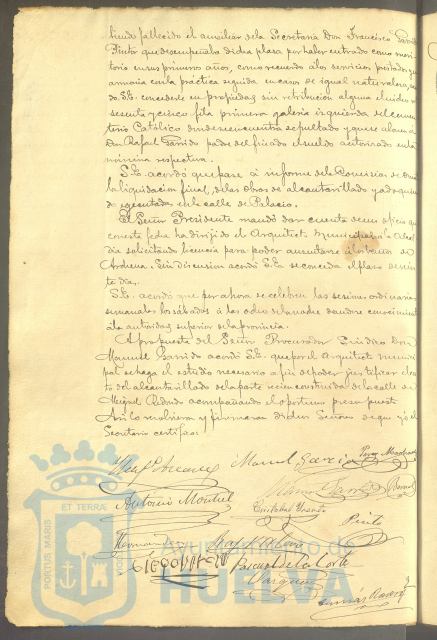 biendo fallecido el auxiliar de la Secretaría Don Francisco Garrido
Pinto que desempeñaba dicha plaza por haber entrado como meri-
torio en sus primeros años, como recuerdo a los servicios prestados y en
armonía con la práctica seguida en casos de igual naturaleza, acor-
dó S.E. concederle en propiedad sin retribución alguna el nicho nº
sesenta y cinco fila primera galería izquierda del cemen-
terio Católico donde se encuentra sepultado y que se abone a
Don Rafael Garrido padre del finado el sueldo autorizado en la
nómina respectiva.
S.E. acordó que pase a informe de la Comisión de
la liquidación final, de las obras de alcantarillado y adoquina-
do ejecutadas en la calle de Palacio.
El Señor Presidente mandó dar cuenta de un oficio que
con esta fecha ha dirigido el Arquitecto Municipal a la Alcal-
día solicitando licencia para poder ausentarse
Sin discusión acordó S.E. se conceda el plazo de vein-
te días.
S.E. acordó que por ahora se celebren las sesiones ordinarias
semanales los sábados a las ocho de la noche dando conocimiento
a la autoridad superior de la provincia.
A propuesta del Señor Procurador Síndico Don
Manuel Garrido acordó S.E. que por el Arquitecto munici-
pal se haga el estudio necesario a fin de poder justificar el cos-
to del alcantarillado de la parte recien construida de la calle de
Miguel Redondo acompañando el oportuno presupuesto
Así lo resolvieron y firmaron dichos Señores de que yo el
Secretario certifico.
Manuel García
Antonio Montiel
Cristobal
Pinto
Hernandez
Pascual de la Corte
Vazquez
PORTUS MARIS
ET TERRAE
Ayuntamiento de
HUELVA